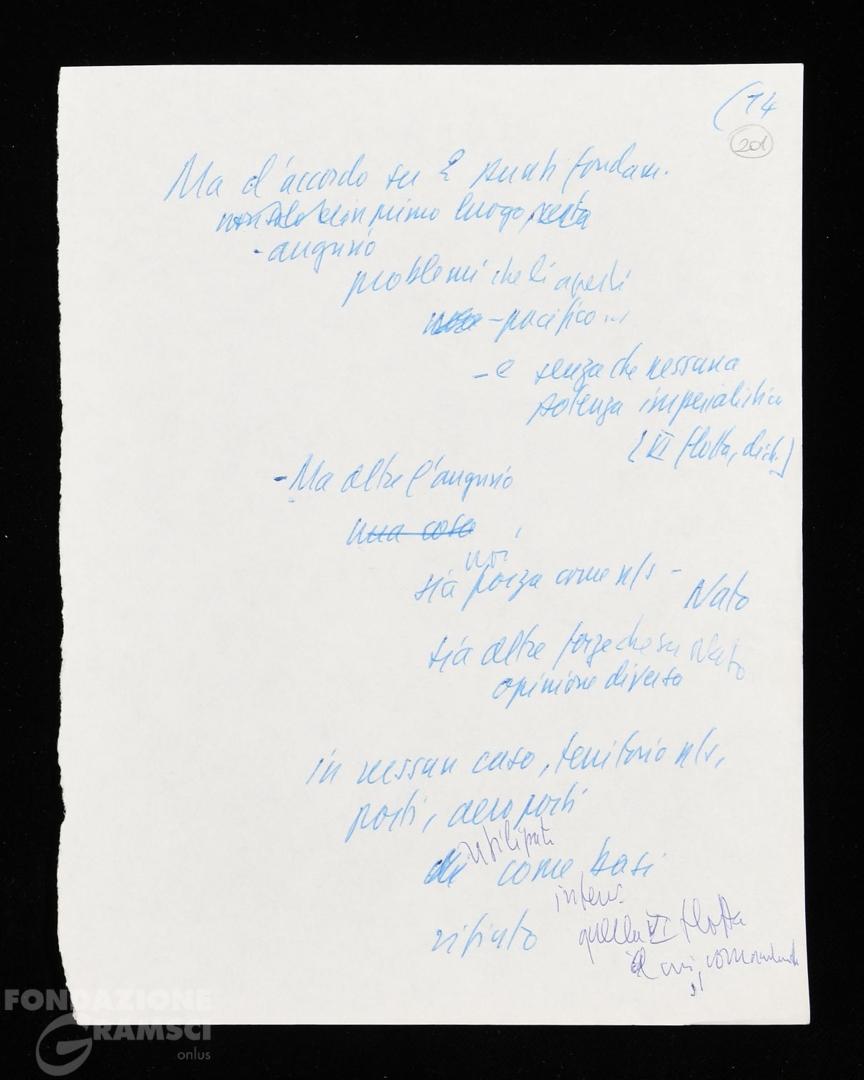 (14
201
Ma d'accordo su 2 punti fondam.
in primo luogo
- augurio
problemi che lì aperti
- pacifico ...
- e senza che nessuna
potenza imperialistica
[VI flotta, dich.]
- Ma oltre l'augurio
una cosa
noi
sia forza come n/s - Nato
sia altre forze che su Nato
opinione diversa
in nessun caso, territorio n/s,
porti, aeroporti
utilizzati
come basi
interv.
rifiuto quella VI flotta
il cui comandante
FONDAZIONE
GRAMSCI
onlus